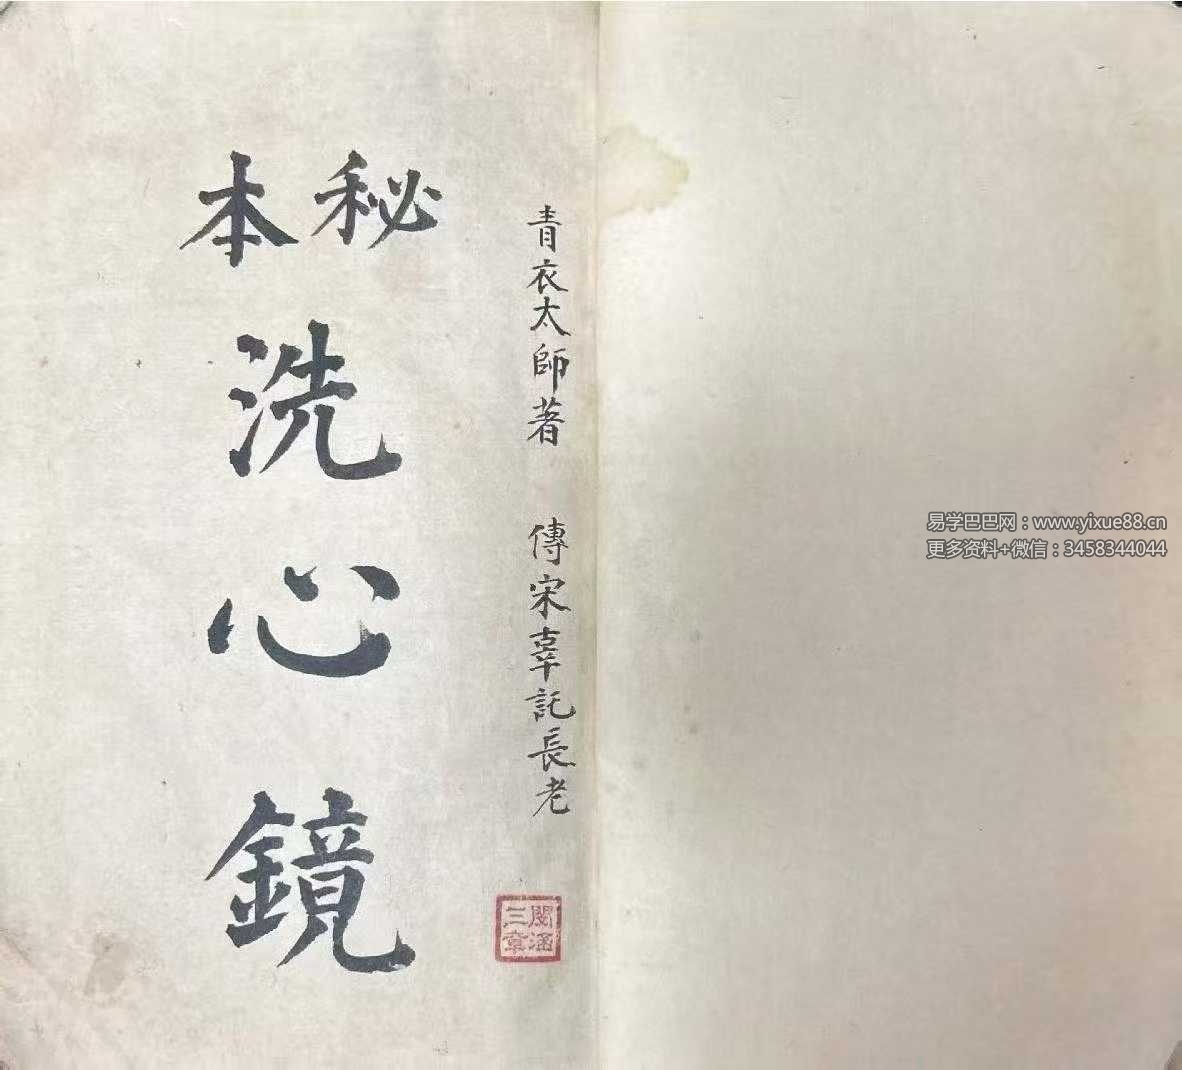 青衣太師著　傳宋辜託長老
秘本
洗心鏡
閩涵三章
易学巴巴网：www.yixue88.cn
更多资料+微信：3458344044